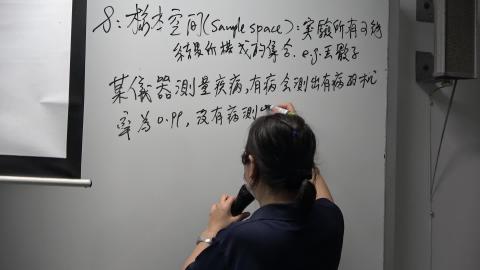 S:樣本空間(Sample space):實驗所有可能
結果所構成的集合. e.g.丟骰子
某儀器測量疾病,有病會測出有病的机
率為0.99,沒有病測出